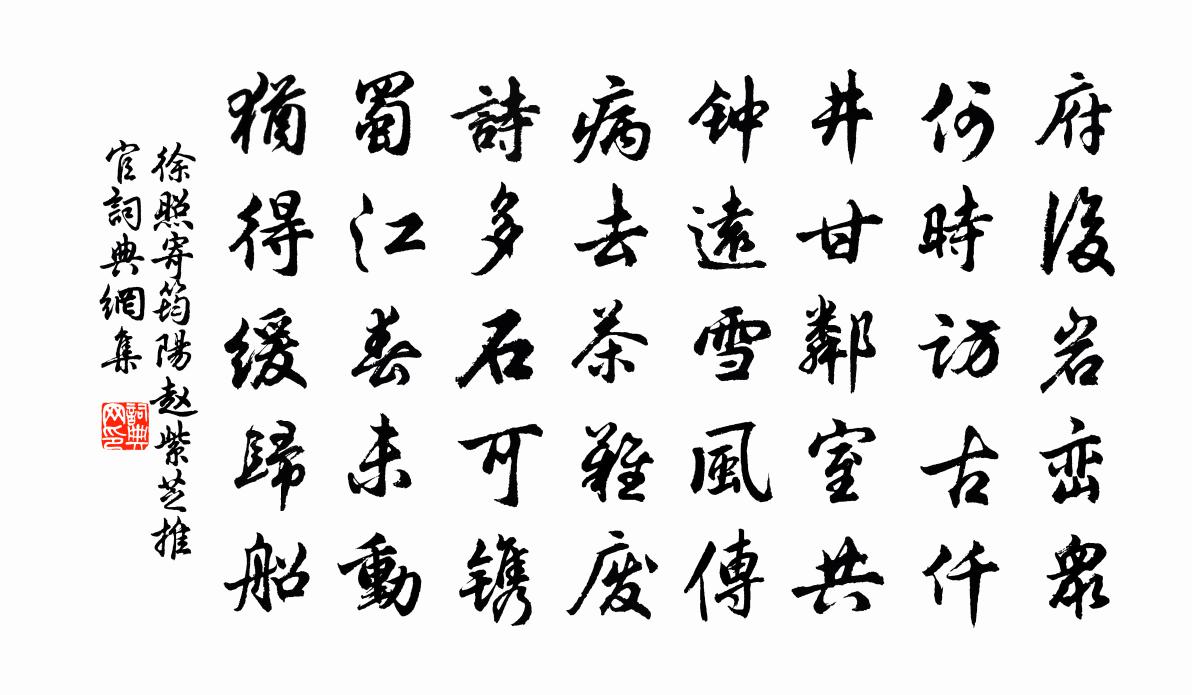 府後岩峦眾
何時訪古仟
井甘鄰室共
钟遠雪風傳
病去茶難废
詩多石可镌
蜀江春未動
猶得缓歸船
徐照寄筠陽赵紫芝推
官詞典網集
詞典
网印